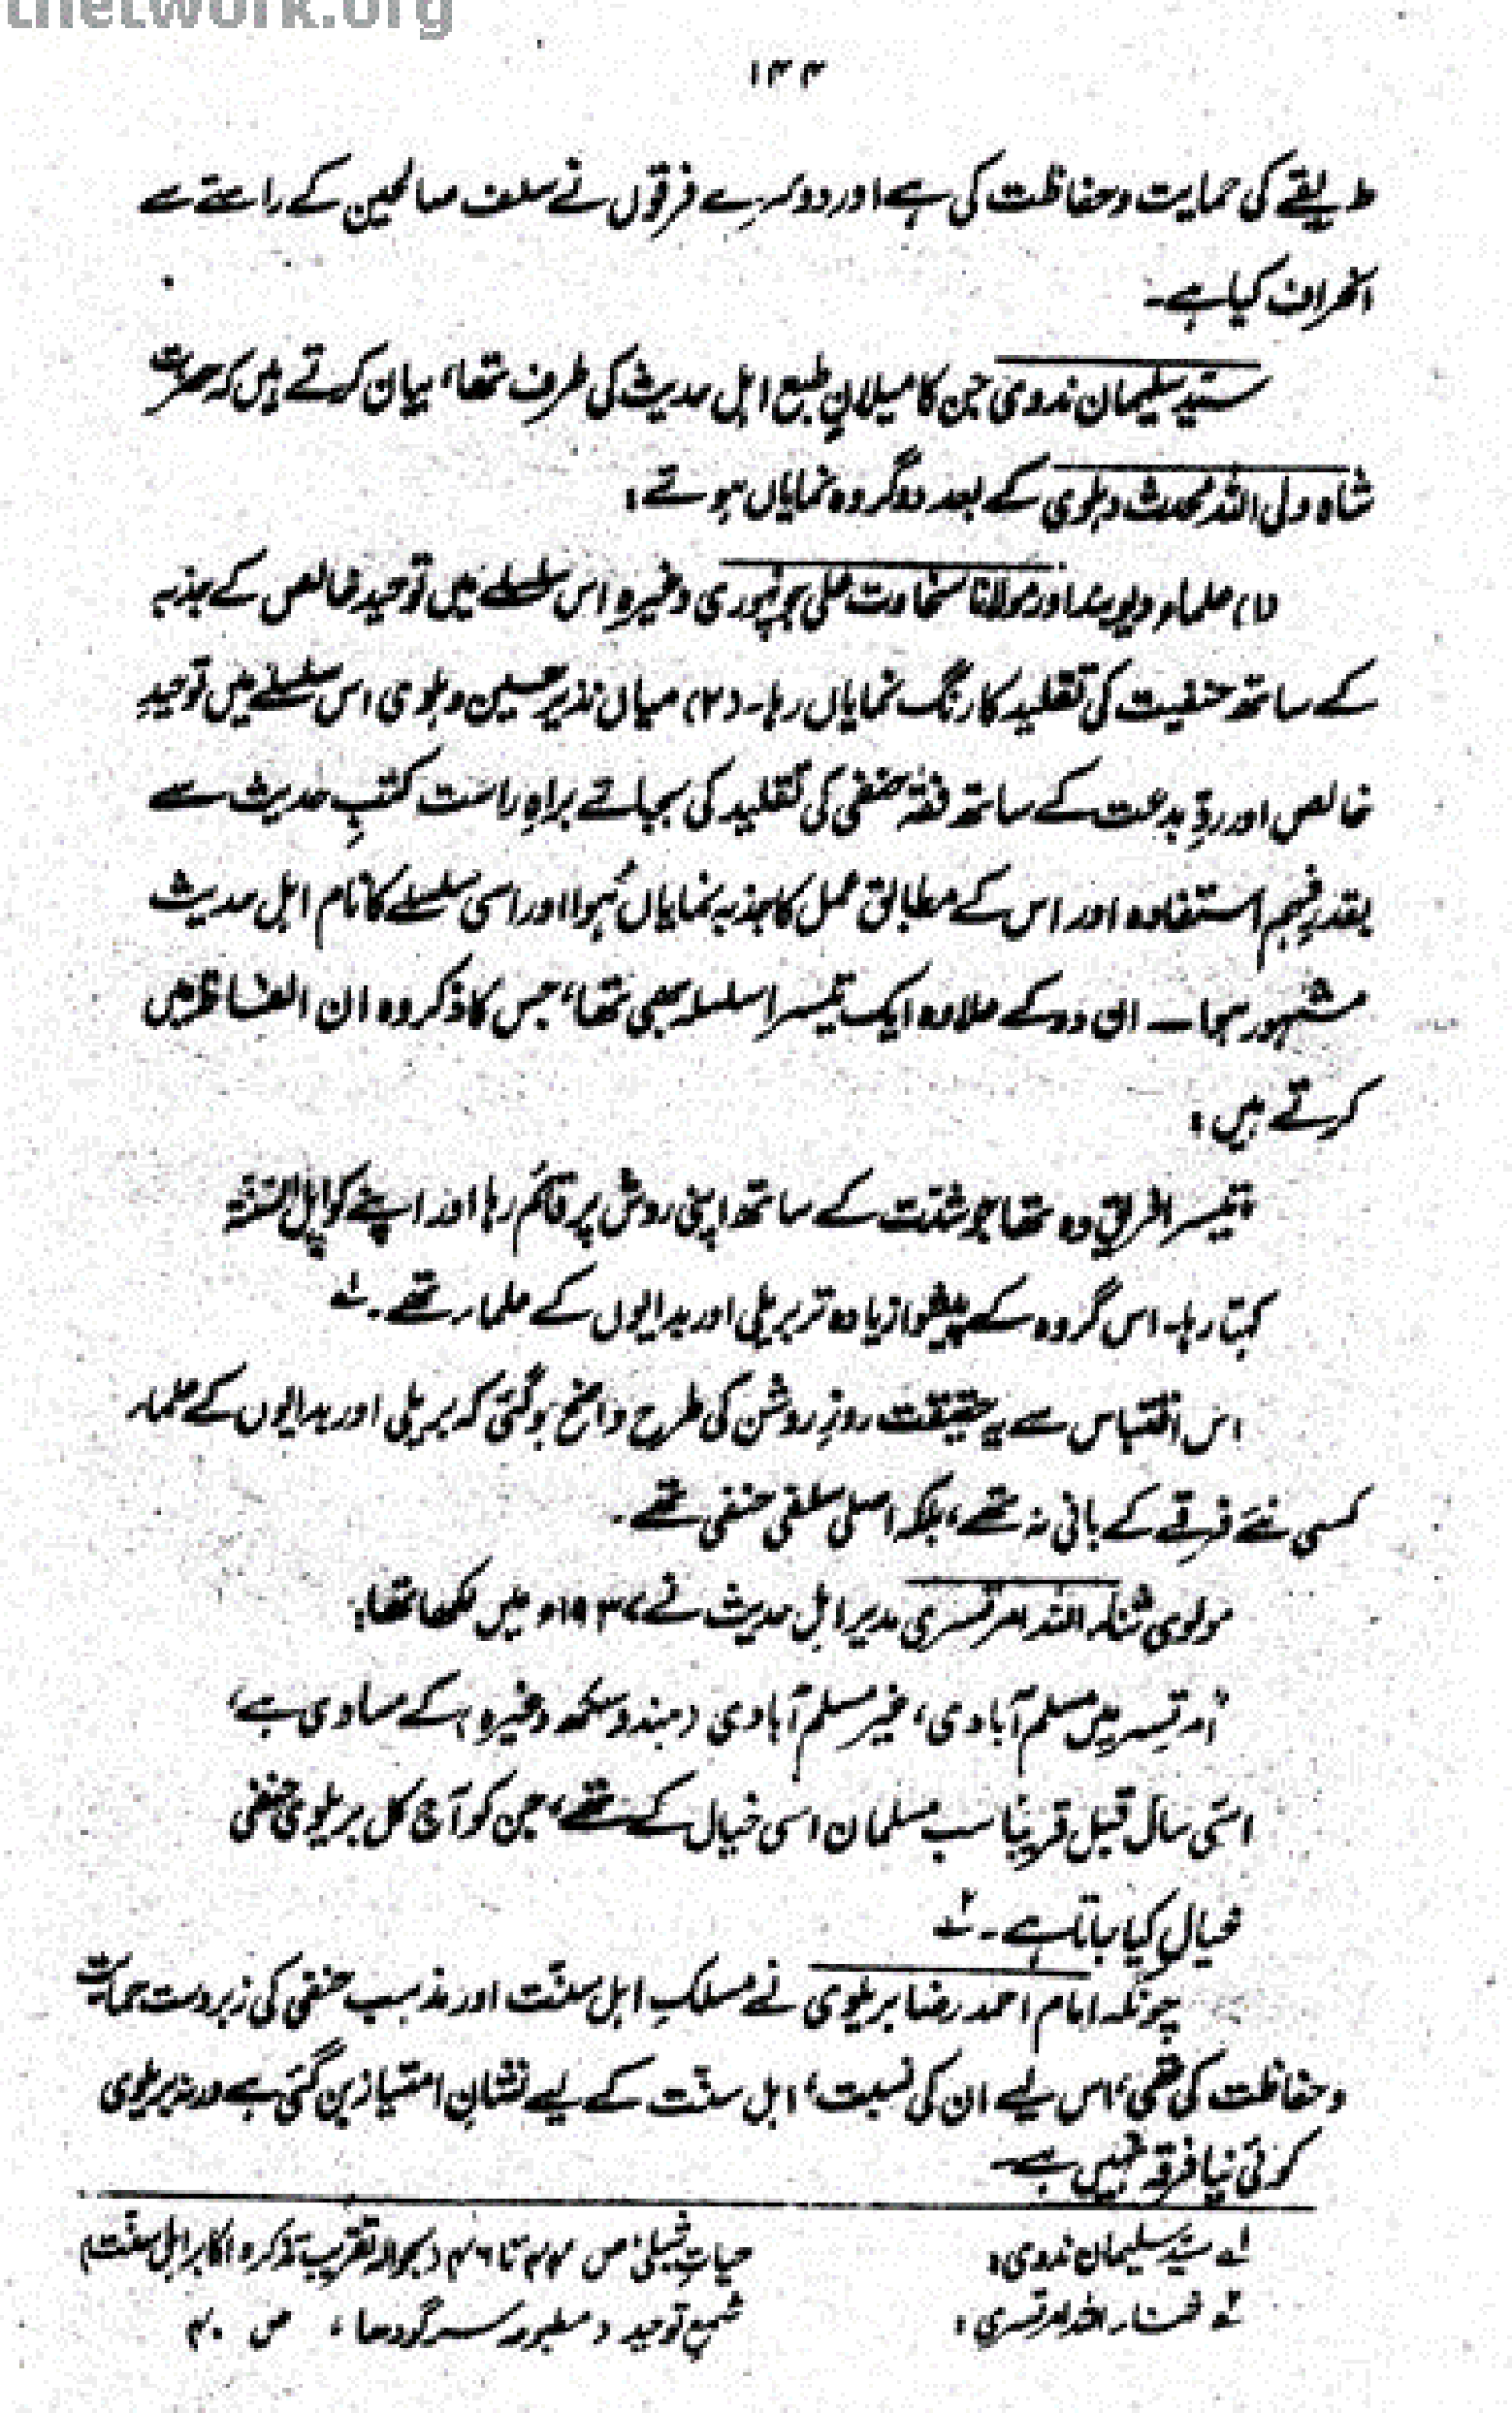 thetwork.org
۱۴۴
طریقے کی حمایت و حفاظت کی ہے اور دوسرے فرقوں نے سلف صالحین کے راستے سے
انحراف کیا ہے۔
سید سلیمان ندوی جن کا میلانِ طبع اہل حدیث کی طرف تھا، بیان کرتے ہیں کہ حضرت
شاہ ولی اللہ محدث دہلوی کے بعد دو گروہ نمایاں ہوئے:
(۱) علماءِ دیوبند اور مولانا سخاوت علی جونپوری وغیرہ اس سلسلے میں توحید خالص کے جذبہ
کے ساتھ حنفیت کی تقلید کا رنگ نمایاں رہا۔ (۲) میاں نذیر حسین دہلوی اس سلسلے میں توحیدِ
خالص اور ردِّ بدعت کے ساتھ فقہ حنفی کی تقلید کی بجائے براہِ راست کتبِ حدیث سے
بقدرِ فہم استفادہ اور اس کے مطابق عمل کا جذبہ نمایاں ہُوا اور اسی سلسلے کا نام اہل حدیث
مشہور ہوا — ان دو کے علاوہ ایک تیسرا سلسلہ بھی تھا، جس کا ذکر وہ ان الفاظ میں
کرتے ہیں:
"تیسرا فریق وہ تھا جو شدّت کے ساتھ اپنی روش پر قائم رہا اور اپنے کو اہل السنّۃ
کہتا رہا۔ اس گروہ کے پیشوا زیادہ تر بریلی اور بدایوں کے علماء تھے۔ ۱ے
اس اقتباس سے یہ حقیقت روزِ روشن کی طرح واضح ہو گئی کہ بریلی اور بدایوں کے علماء
کسی نئے فرقے کے بانی نہ تھے، بلکہ اصلی سلفی حنفی تھے۔
مولوی ثناء اللہ امرتسری مدیر اہل حدیث نے ۱۹۳۷ء میں لکھا تھا:
"امرتسر میں مسلم آبادی، غیر مسلم آبادی (ہندو سکھ وغیرہ) کے مساوی ہے،
اسّی سال قبل قریباً سب مسلمان اسی خیال کے تھے، جن کو آج کل بریلوی حنفی
خیال کیا جاتا ہے۔ ۲ے
چونکہ امام احمد رضا بریلوی نے مسلکِ اہل سنّت اور مذہب حنفی کی زبردست حمایت
و حفاظت کی تھی، اس لیے ان کی نسبت، اہل سنّت کے لیے نشانِ امتیاز بن گئی ہے ورنہ بریلوی
کوئی نیا فرقہ نہیں ہے۔
۱ے سیّد سلیمان ندوی: حیاتِ شبلی، ص ۴۴ تا ۴۶ (بحوالہ تقریب تذکرہ اکابر اہل سنّت)
۲ے ثناء اللہ امرتسری: شمع توحید (مطبوعہ سرگودھا)، ص ۴۰